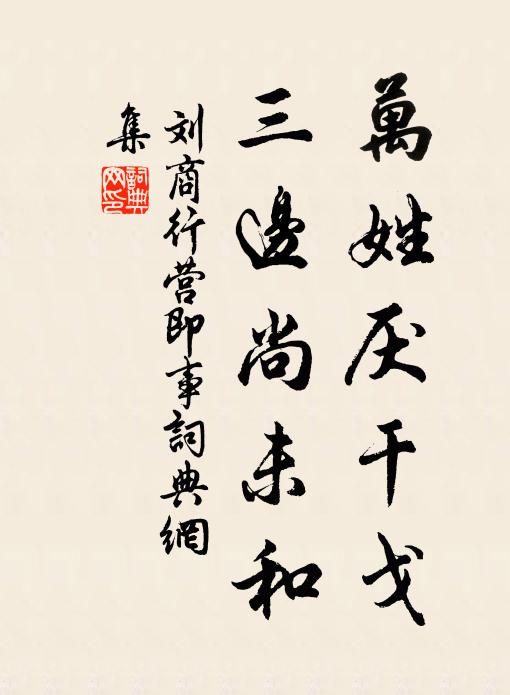 萬姓厌干戈
三邊尚未和
刘商行营即事詞典網
集
詞典
网印